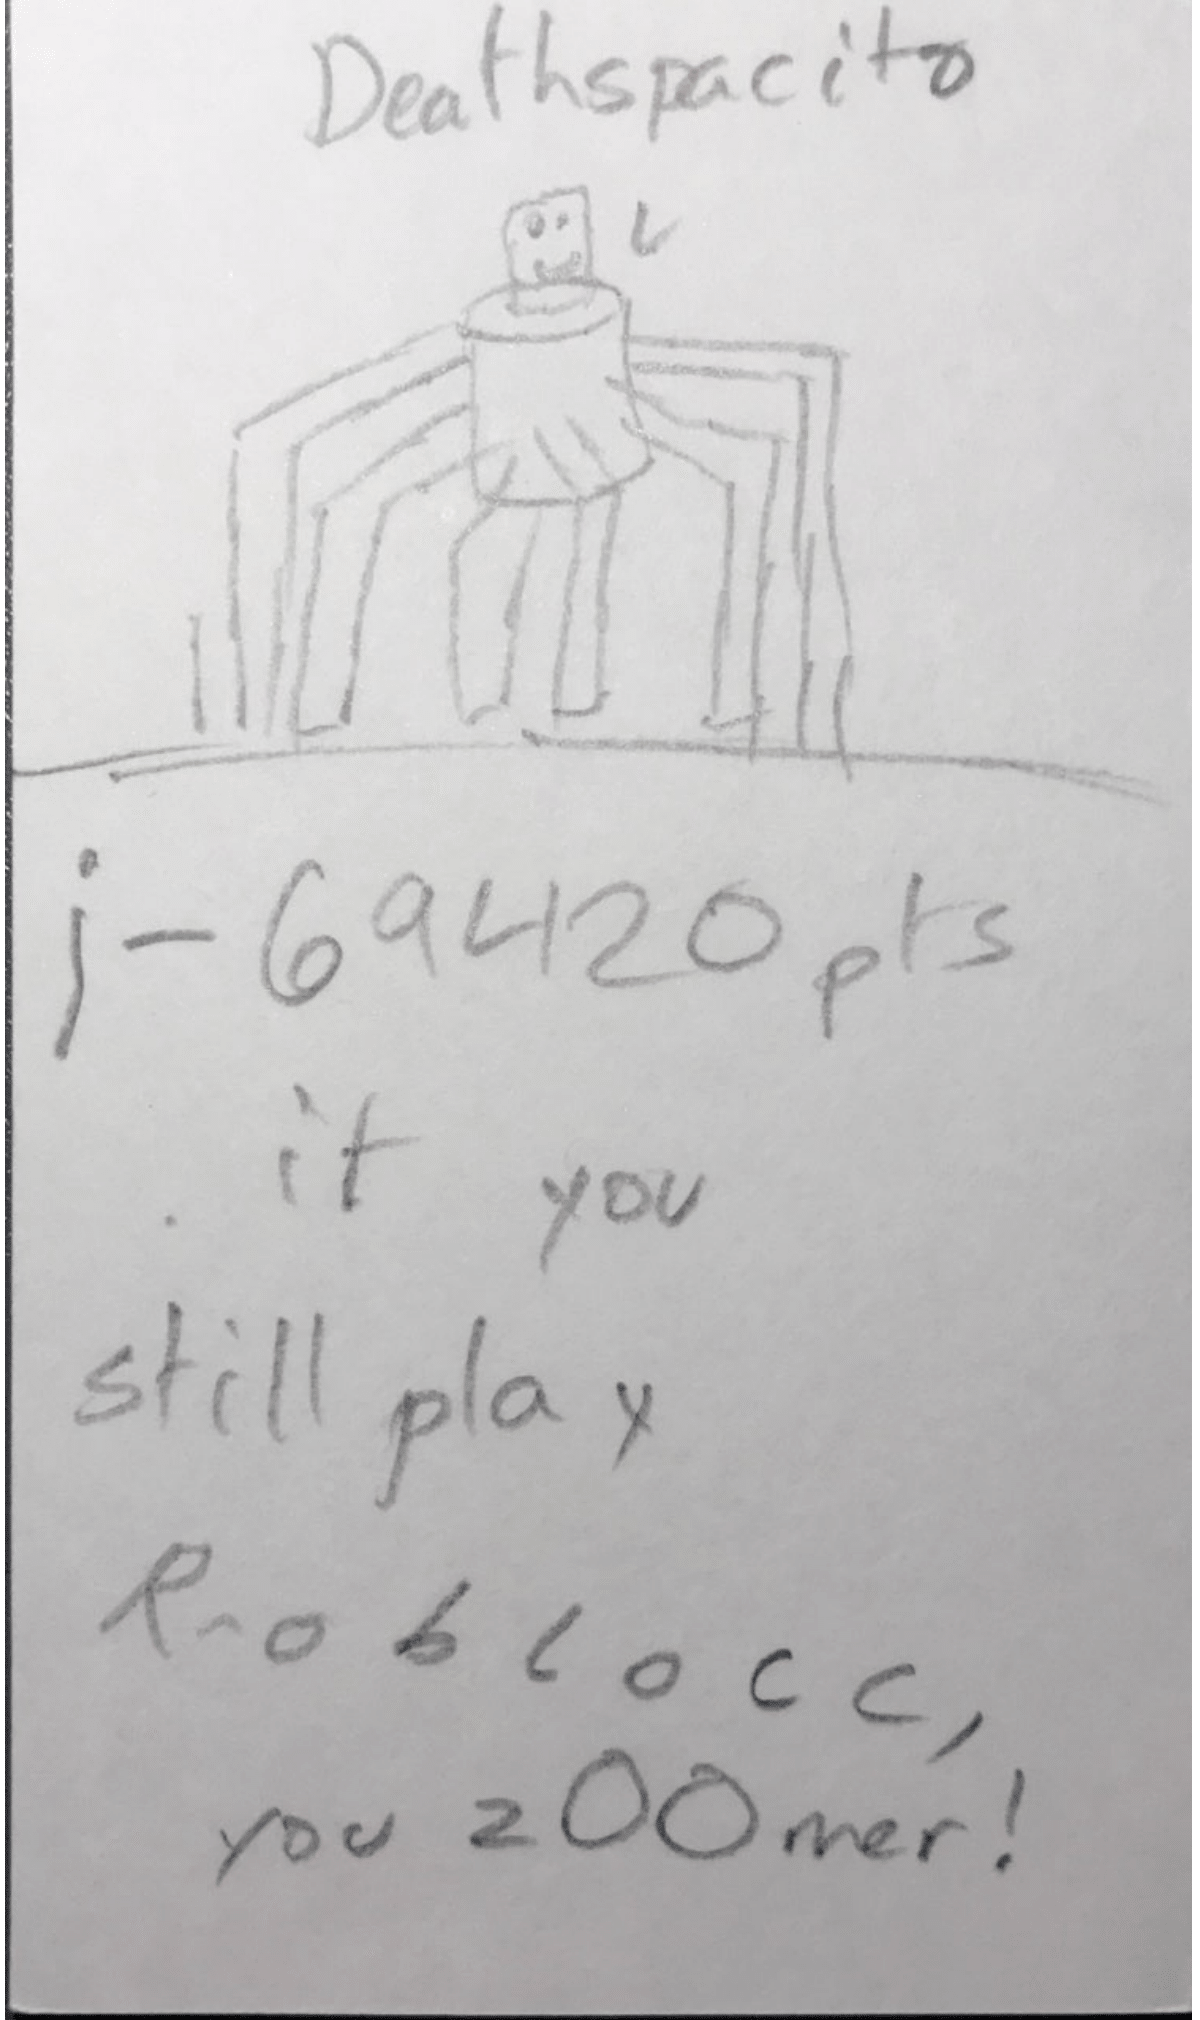 Deathspacito
j - 69420 pts
it you
still play
Roblocc,
you z00mer!